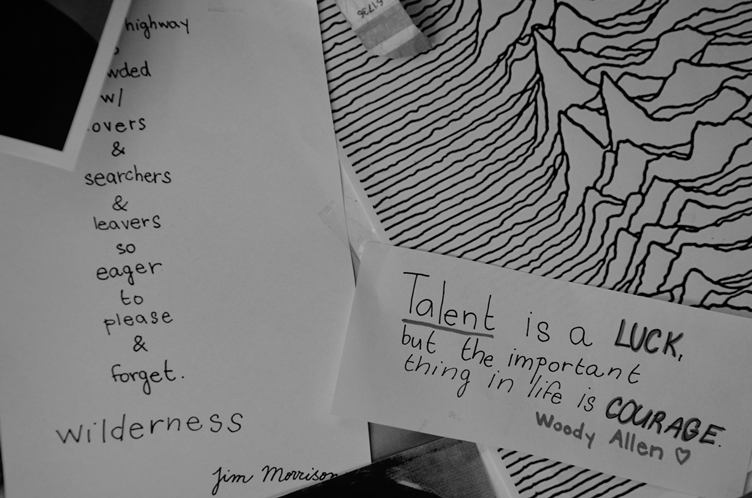 highway
w/
&
searchers
&
leavers
so
eager
to
please
&
forget.
wilderness
Jim Morrison
61736
Talent is a LUCK,
but the important
thing in life is COURAGE.
Woody Allen ♡